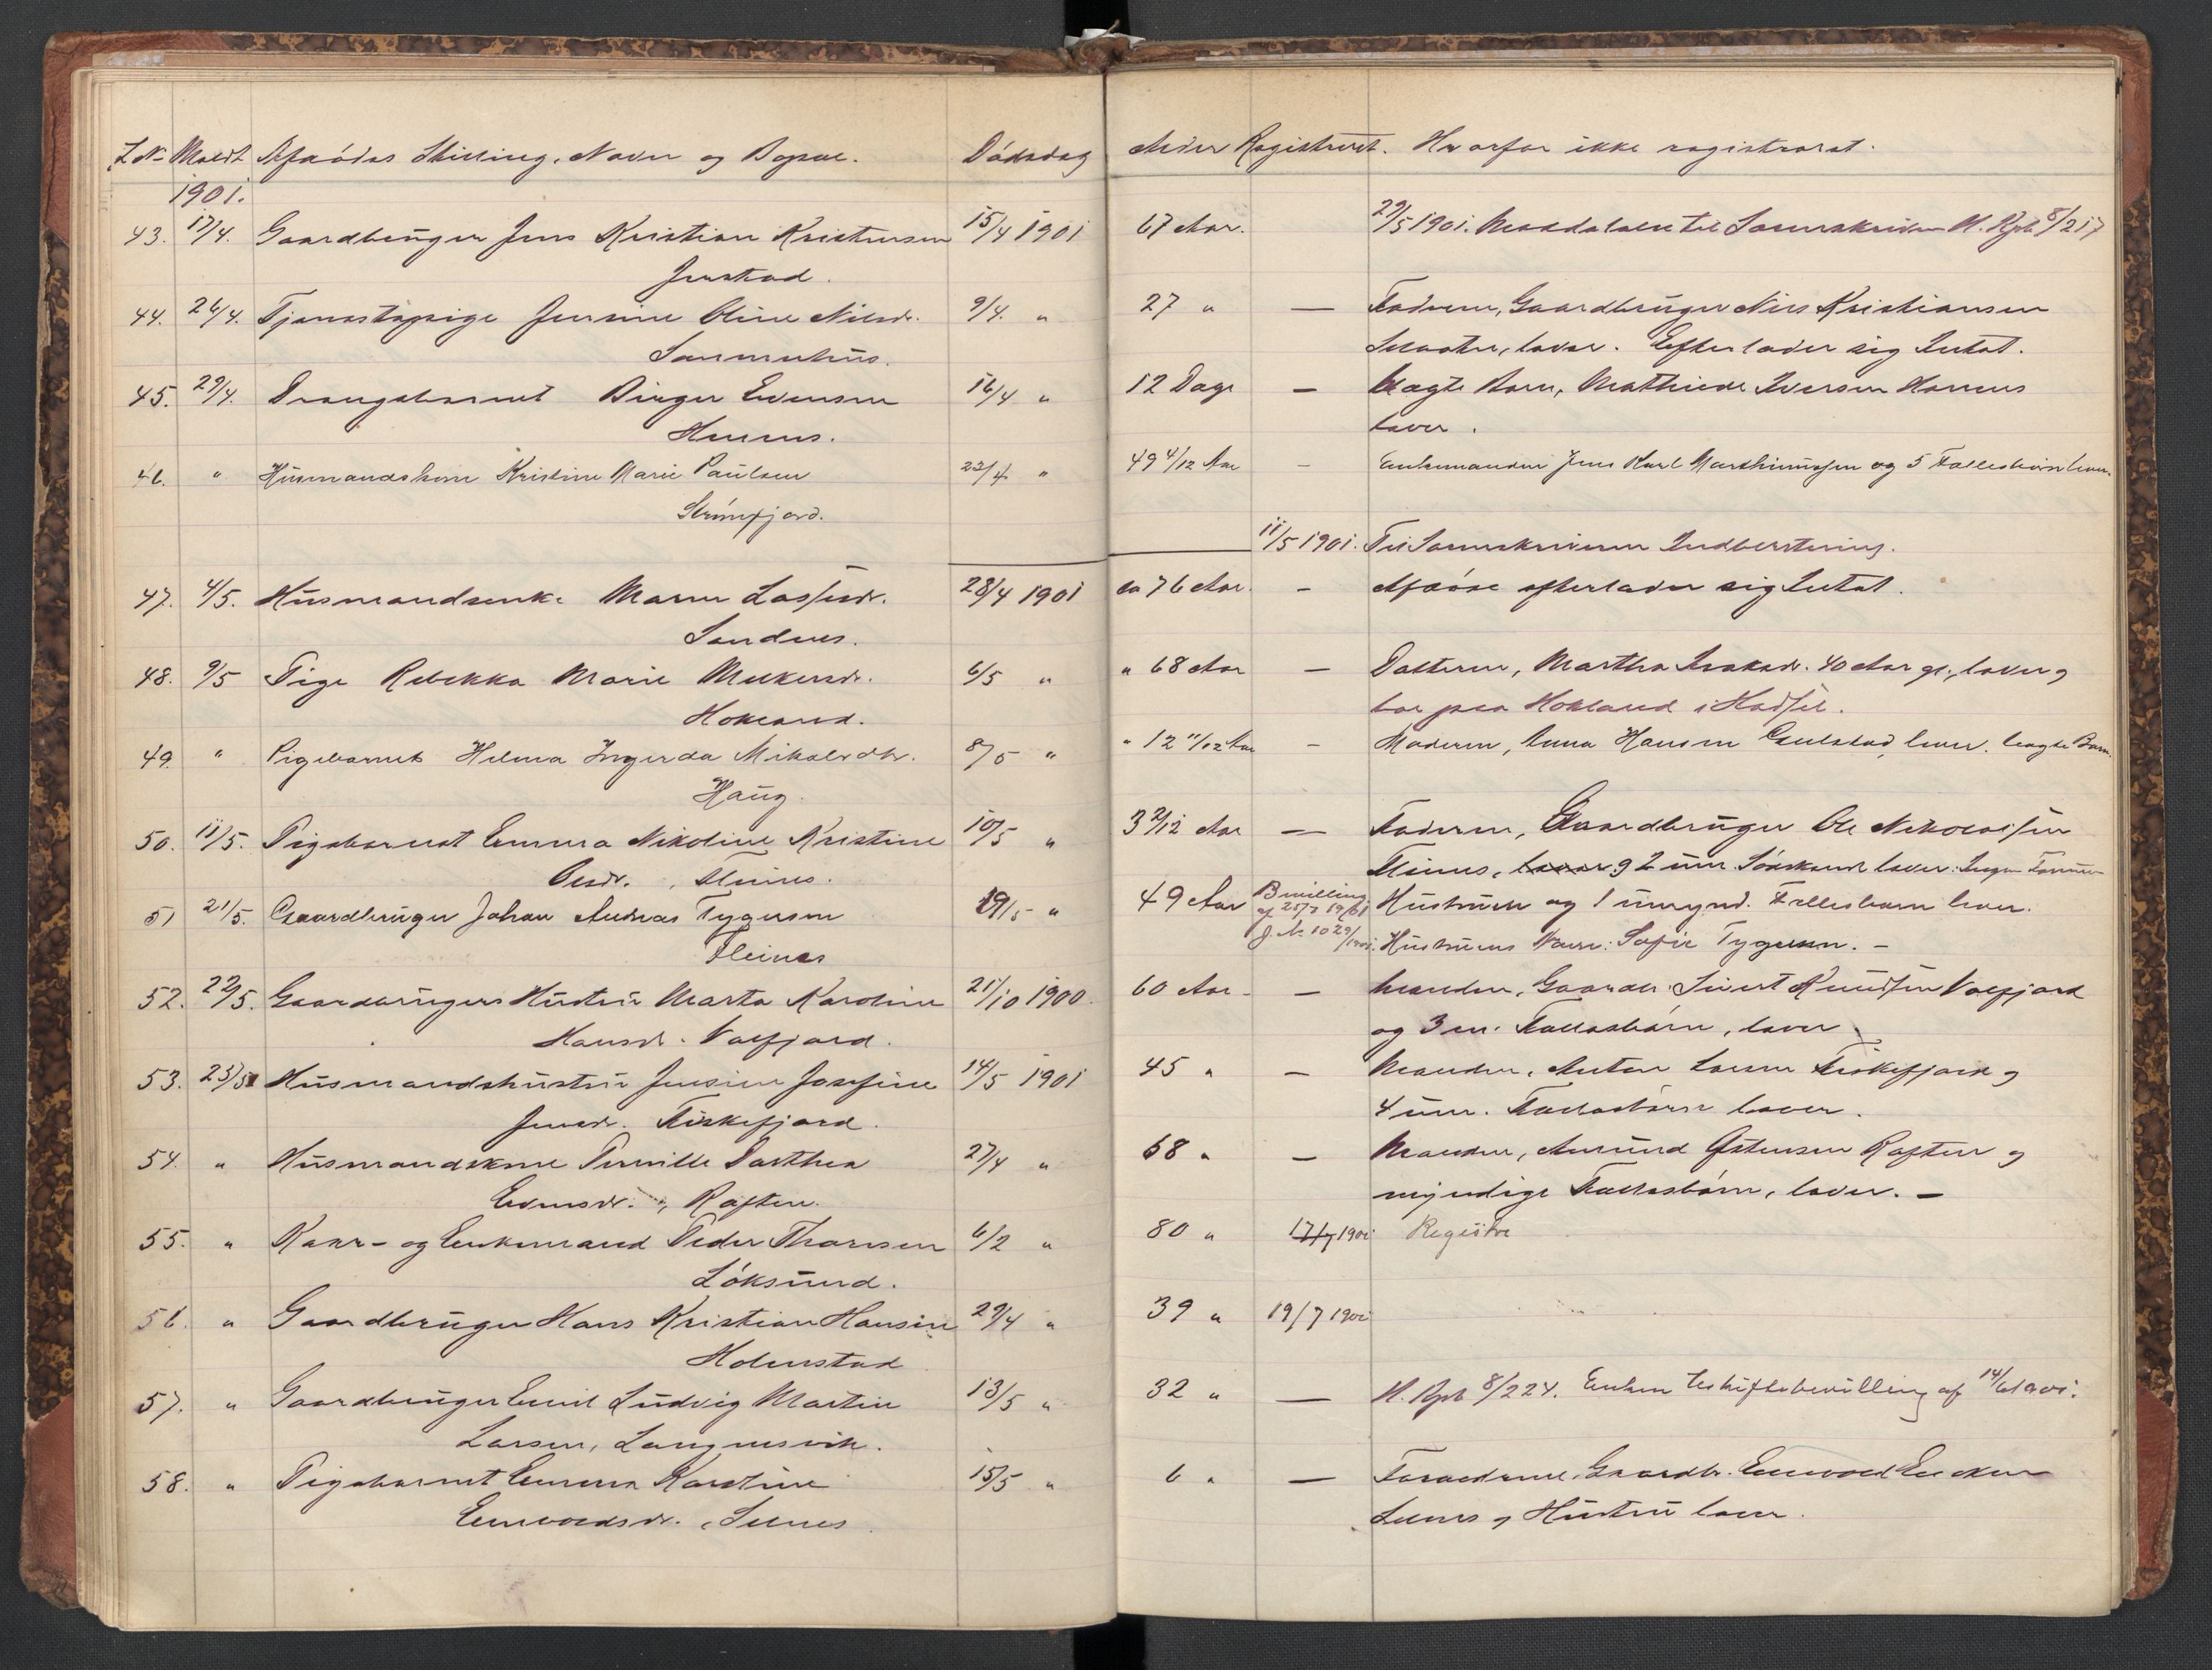 L. No Meldt Afdødes Stilling, Navn og Bopæl. Dødsdag
1901.
43. 17/4. Gaardbruger Jens Kristian Kristensen 15/4 1901
Jenstad.
44. 26/4. Tjenestepige Jensine Oline Nilsdr. 9/4. "
Sammenhus.
45. 29/4. Drengebarnet Birger Evensen 16/4 "
46. " Husmandskone Kristine Marie Paulsen 22/4 "
Strømfjord.
47. 4/5. Husmandsenke Maren Lassesdr. 28/4 1901
Sandnes.
48. 9/5 Pige Rebekka Marie Mikkelsdr. 6/5 "
Hokland.
49. " Pigebarnet Helma Ingerda Mikalsdtr. 8/5 "
Haug.
50. 11/5. Pigebarnet Emma Nikoline Kristine 10/5 "
Olesdr., Fleines.
51 21/5. Gaardbruger Johan Andreas Tygesen 19/5 "
Fleines
52. 22/5. Gaardbrugers Hustru Marta Karoline 21/10 1900.
Hansdr. Valfjord.
53. 23/5 Husmandshustru Jensine Josefine 14/5 1901
Jensdr. Fiskefjord.
54. " Husmandskone Pernille Dorthea 27/4 "
Evensdr., Raften.
55. " Kaar- og Enkemand Peder Thoresen 6/2 "
Løksund.
56. " Gaardbruger Hans Kristian Hansen 29/4 "
Holmstad
57. " Gaardbruger Emil Ludvig Martin 13/5 "
Larsen, Langnesvik.
58. " Pigebarnet Emma Karoline 15/5 "
Selnes.
Alder Registreret. Hvorfor ikke registreret.
67 Aar. 29/5 1901. Meddelelse til Sorenskriveren N. Rpt. 8/217
27 " — Faderen, Gaardbruger Nils Kristiansen
lever. Efterlader sig Intet.
12 Dage — Uægte Barn, Mathilde Iversen
lever.
49 4/12 Aar — Enkemanden Jens Karl Marthinussen og 5 Fællesbørn lever.
11/5 1901. Til Sorenskriveren Indberetning.
ca 76 Aar. — Afdøde efterlader sig Intet.
" 68 Aar — Datteren, Martha Isaksdr. 40 Aar gl., lever og
bor paa Hokland i Hadsel.
" 12 11/12 Aar — Moderen, Anna Hansen Gulstad, lever. Uægte Barn.
3 2/12 Aar — Faderen, Gaardbruger Ole Nikolaisen
Fleines, lever og 2 um. Søskende lever. Ingen Formue
49 Aar Bevilling af 25/7 1901 J. No 1029/1901. Hustruen og 1 umynd. Fællesbarn lever.
Hustruens Navn: Sofie Tygesen. —
60 Aar — Manden, Gaardbr. Sivert Knudsen Valfjord
og 3 m. Fællesbørn, lever.
45 " — Manden, Anton Larsen Fiskefjord og
4 um. Fællesbørn lever.
68 " — Manden, Amund Østensen Raften og
myndige Fællesbørn, lever. —
80 " 17/7 1901 Registre
39 " 19/7 1901
32 " — N. Rpt. 8/224. Enken Uskiftebevilling af 14/6 1901.
6 " — Forældrene, Gaardbr.
Selnes og Hustru lever.